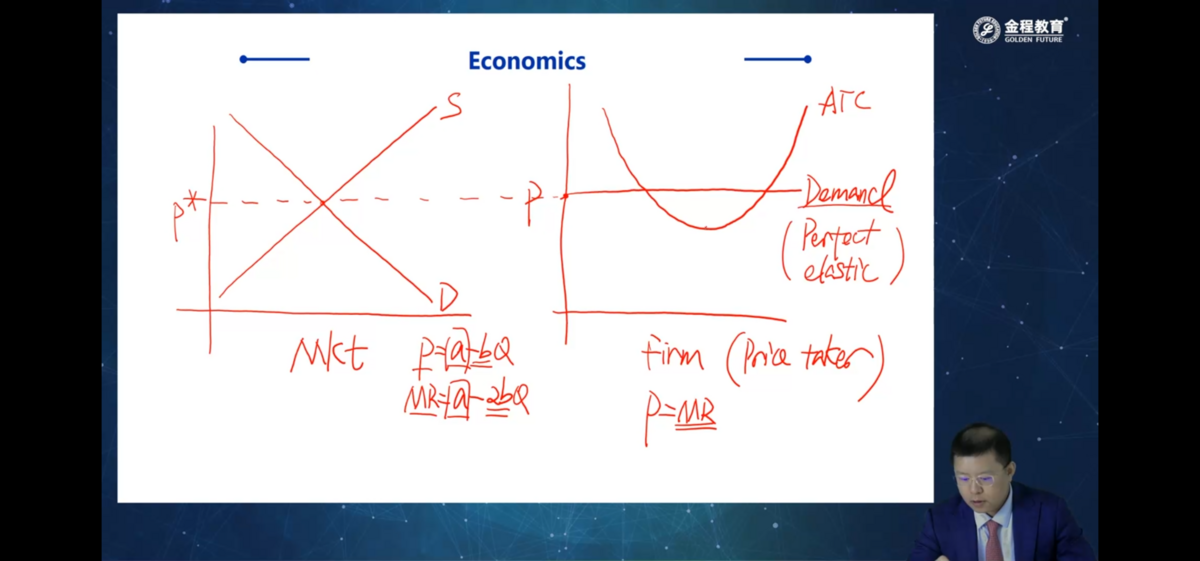 金程教育
GOLDEN FUTURE
Economics
S
P*
D
Mkt
P=a-bQ
MR=a-2bQ
ATC
P
Demand
(Perfect
elastic)
Firm (Price taker)
P=MR